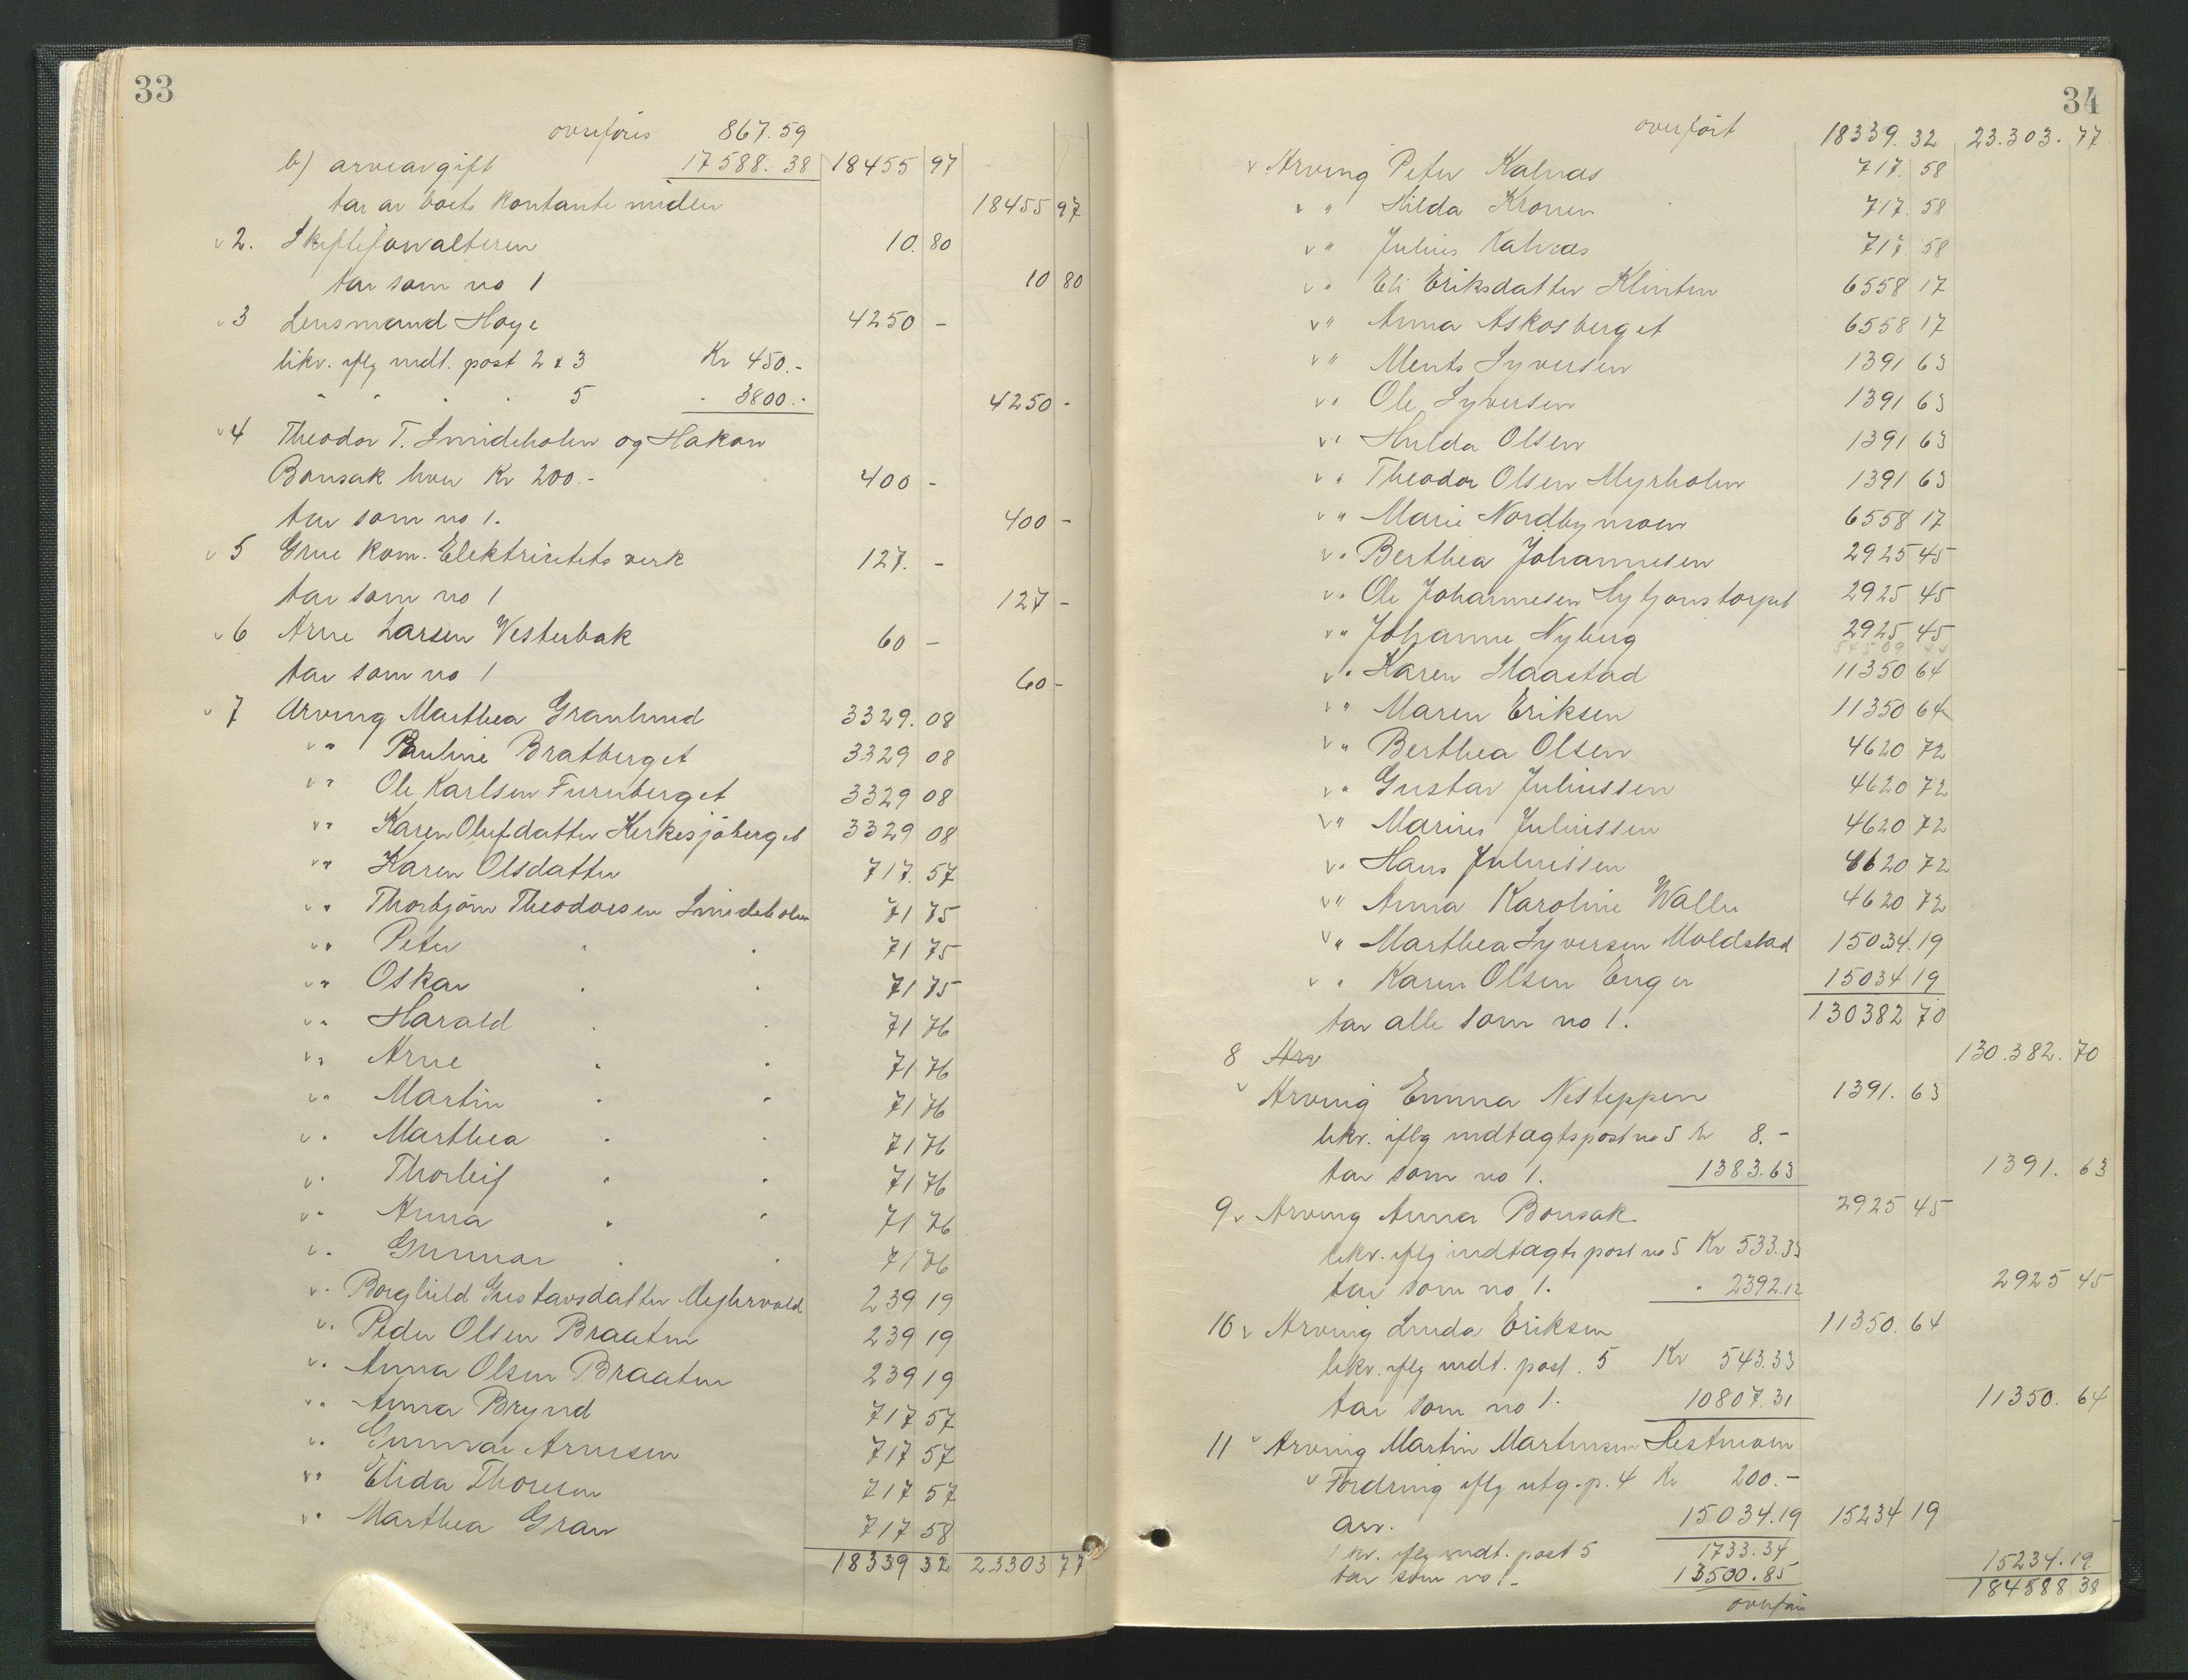 33
overføres 867.59
b) arveavgift 17588.38 18455 97
tar av boets kontante midler 18455 97
v 2. Skifteforvalteren 10.80
tar som no 1 10 80
v 3 Lensmand Høye 4250 -
likv. iflg indt. post 2 & 3 Kr 450.-
" " " " 5 " 3800.- 4250 -
v 4 Theodor T. Smideholen og Hakon
Bonsak hver Kr 200.- 400 -
tar som no 1. 400 -
v 5 Grue kom. Elektricitetsverk 127. -
tar som no 1 127 -
v 6 Arne Larsen Vesterbak 60 -
tar som no 1 60 -
v 7 Arving Marthea Granlund 3329.08
v " Pauline Bratberget 3329 08
v " Ole Karlsen Furuberget 3329 08
v " Karen Olufdatter Kirkesjøberget 3329 08
v " Karen Olsdatter 717.57
v " Thorbjørn Theodorsen Smideholen 71 75
v " Peter " " 71 75
v " Oskar " " 71 75
v " Harald " " 71 76
v " Arne " " 71 76
v " Martin " " 71 76
v " Marthea " " 71 76
v " Thorleif " " 71 76
v " Anna " " 71 76
v " Gunnar " " 71 76
v " Borghild Gustavsdatter 239 19
v " Peder Olsen Braaten 239 19
v " Anna Olsen Braaten 239 19
v " Anna Brynd 717 57
v " Gunnar Arnesen 717 57
v " Elida Thoresen 717 57
v " Marthea Gran 717 58
18339 32 23303 77
34
overført 18339.32 23.303.77
v Arving Peter Kalnæs 717.58
v " Hilda Kronen 717.58
v " Julius Kalnæs 717.58
v " Eli Eriksdatter Klinten 6558 17
v " Anna Askosberget 6558 17
v " Ments Syversen 1391 63
v " Ole Syversen 1391 63
v " Hulda Olsen 1391 63
v " Theodor Olsen Myrholen 1391 63
v " Marie Nordbymoen 6558 17
v " Berthea Johannesen 2925 45
v " Ole Johannesen 2925 45
v " Johanne Nyberg 2925 45
v " Karen Haastad 11350 64
v " Maren Eriksen 11350 64
v " Berthea Olsen 4620 72
v " Gustav Juliussen 4620 72
v " Marius Juliussen 4620 72
v " Hans Juliussen 4620 72
v " Anna Karoline Waller 4620 72
v " Marthea Syversen Moldstad 15034.19
v " Karen Olsen Enger 15034 19
tar alle som no 1. 130382 70
8 Arv 130.382.70
v Arving Emma Nesteppen 1391.63
likv. iflg indtagtspost no 5 Kr 8.-
tar som no 1. 1383.63 1391.63
9 v Arving Anna Bonsak 2925 45
likv. iflg indtagts post no 5 Kr 533.33
tar som no 1. " 2392.12 2925 45
10 v Arving Linda Eriksen 11350.64
likv. iflg indt. post. 5 Kr 543.33
tar som no 1. 10807.31 11350.64
11 v Arving Martin Martinsen Hestmoen
v Fordring iflg utg. p. 4 Kr 200.-
arv. 15034.19 15234 19
likv. iflg indt. post 5 1733.34
tar som no 1. 13500.85 15234.19
overføres 184588 38